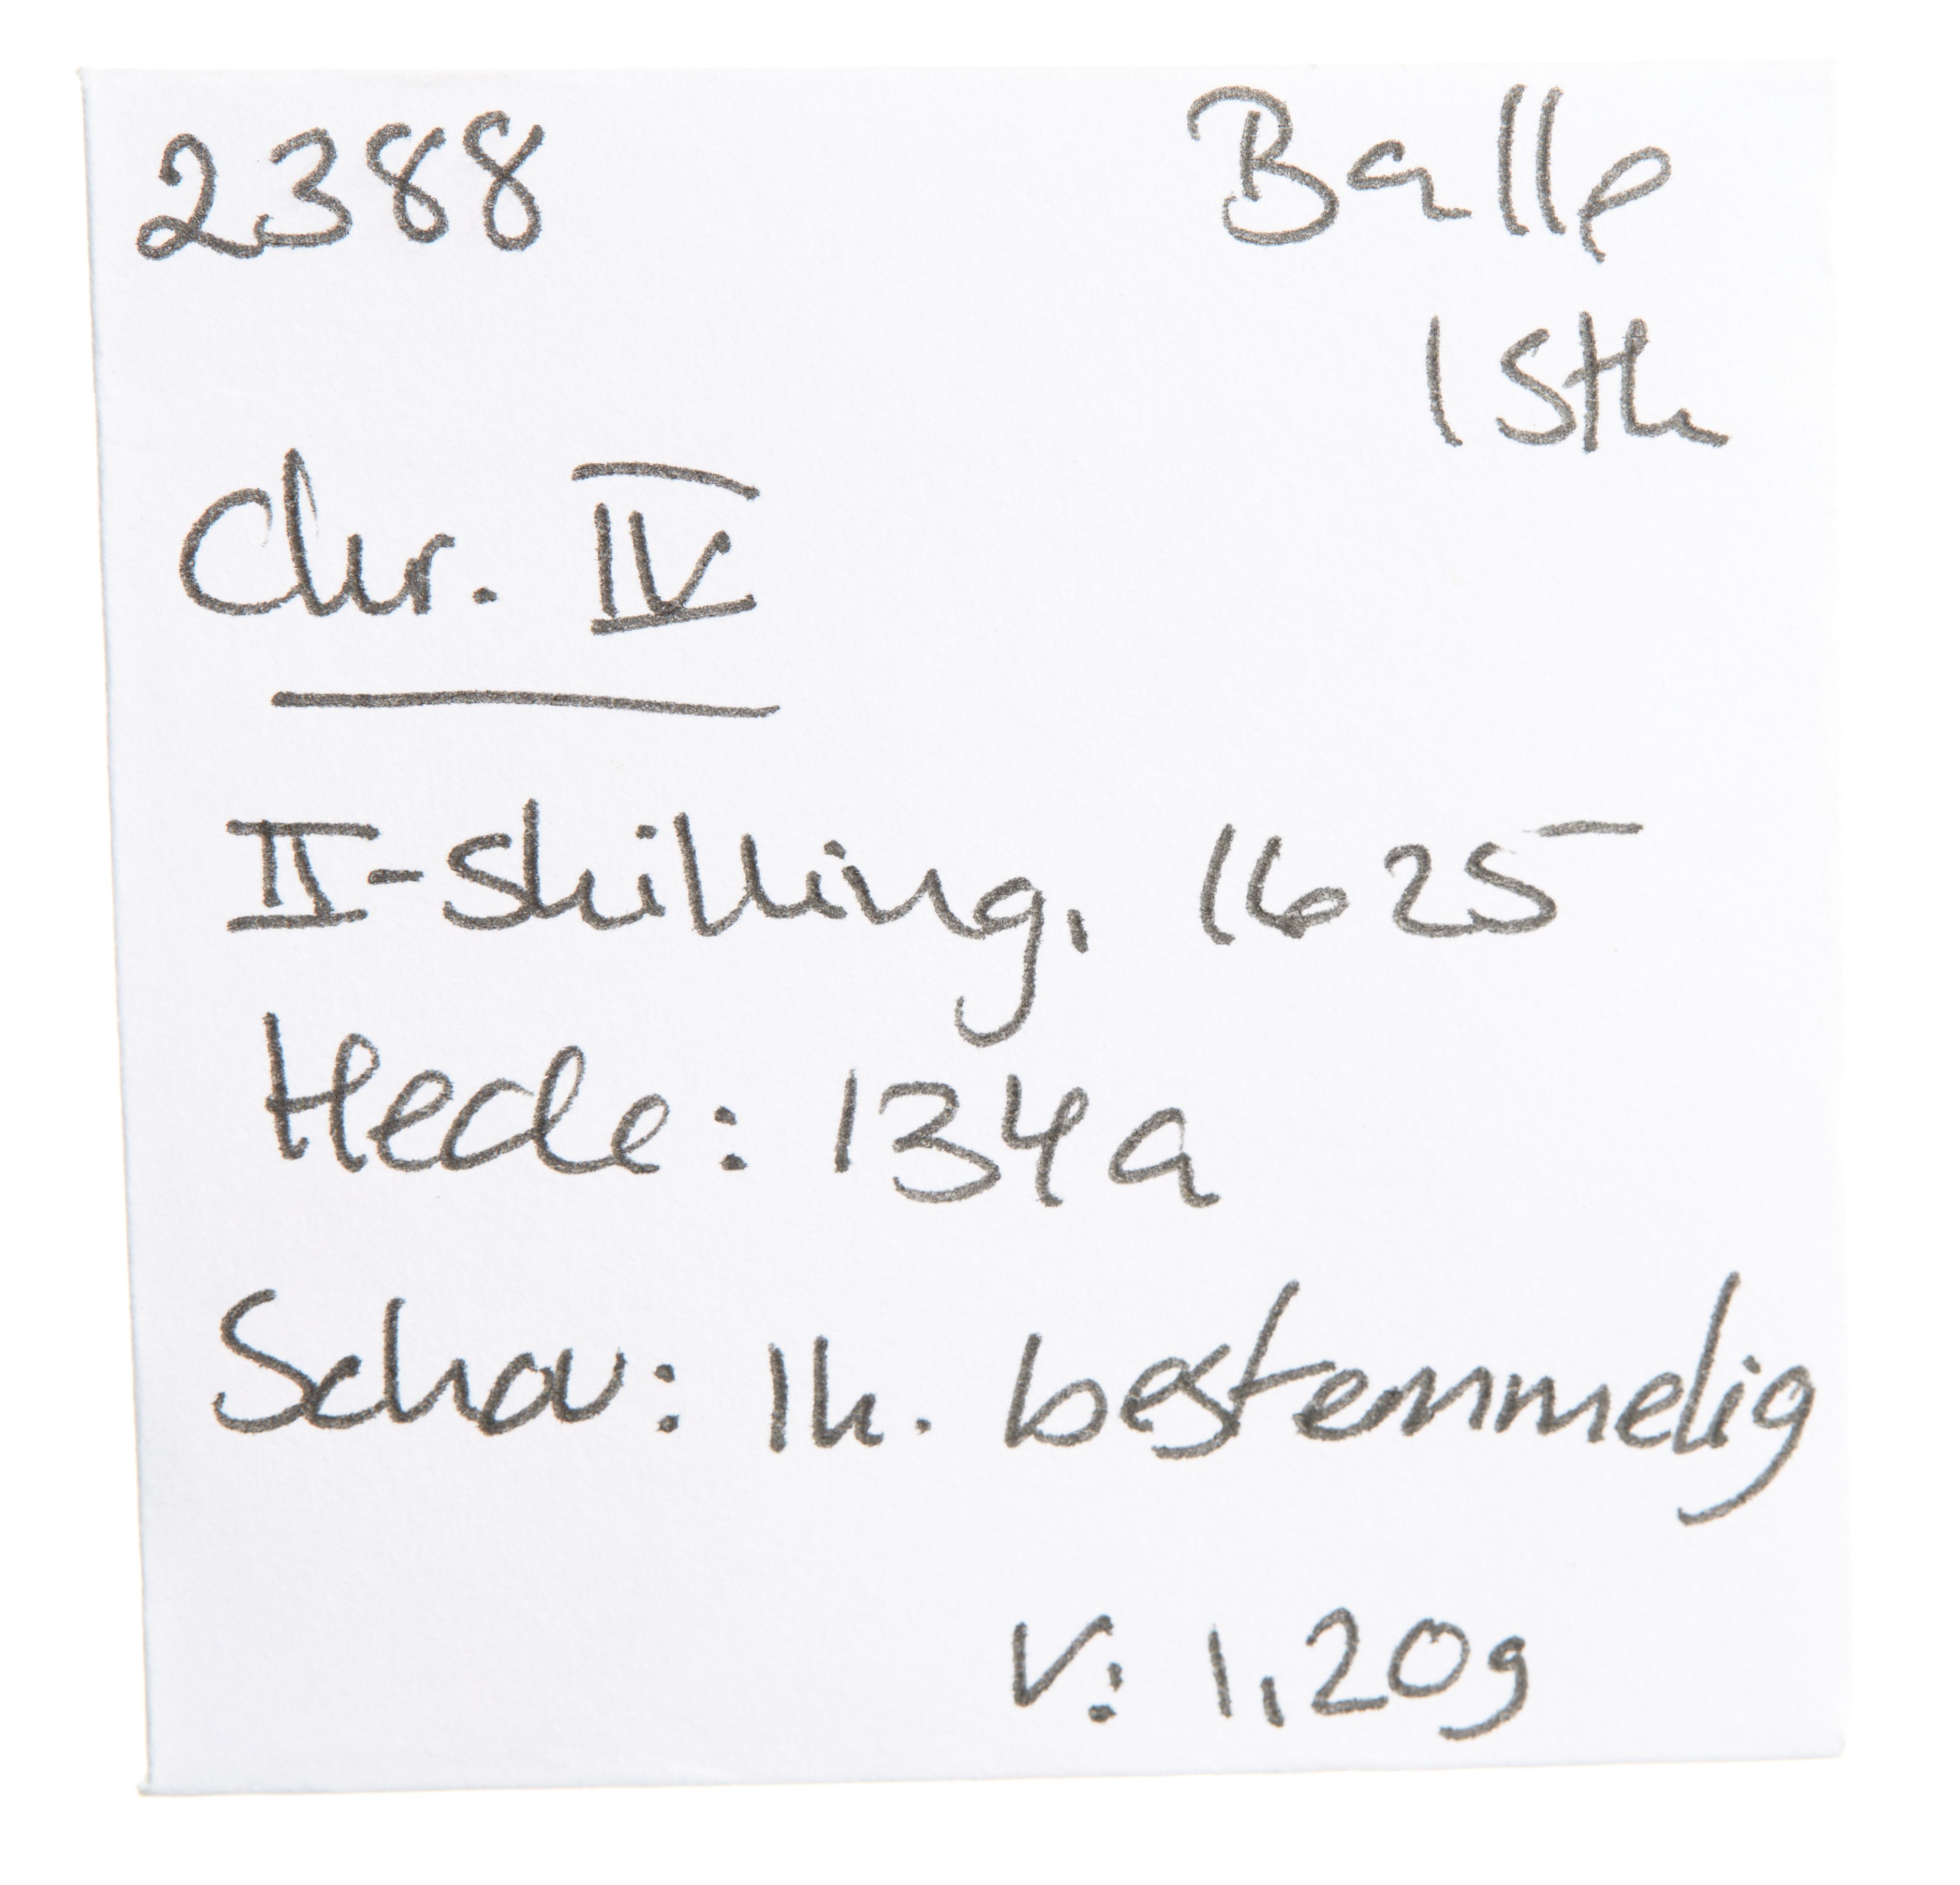 2388 Balle
1 Stk
Chr. IV
II-skilling, 1625
Hede: 134a
Schou: Ik. bestemmelig
V: 1,20g